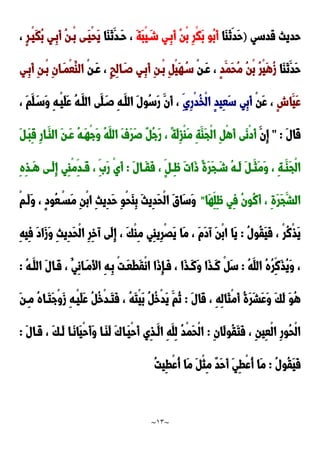 حديث قدسي (حَدَّثَنَا أَبُو بَكْرِ بْنُ أَبِي شَيْبَةَ ، حَـدَّثَنَا يَحْـيَى بْـنُ أَبِـي بُكَيْـرٍ ،
حَدَّثَنَا زُهَيْرُ بْنُ مُحَمَّدٍ ، عَـنْ سُهَيْلِ بْـنِ أَبِـي صَـالِحٍ ، عَـنْ النُّعْمَـانِ بْـنِ أَبِـي
عَيَّاشٍ ، عَنْ أَبِي سَعِيدٍ الْخُدْرِيِّ ، أَنَّ رَسُولَ اللَّـهِ صَـلَّى اللَّـهُ عَلَيْـهِ وَسَـلَّمَ ،
قَالَ : " إِنَّ أَدْنَى أَهْلِ الْجَنَّةِ مَنْزِلَةً ، رَجُلٌ صَرَفَ اللَّهُ وَجْهَـهُ عَـنَ النَّـارِ قِبَـلَ
الْجَنَّـةِ ، وَمَثَّـلَ لَـهُ شَـجَرَةً ذَاتَ ظِـلٍّ ، فَقَـالَ : أَيْ رَبِّ ، قَـدِّمْنِي إِلَـى هَـذِهِ
الشَّجَرَةِ ، أَكُونُ فِي ظِلِّهَا" وَسَاقَ الْحَدِيثَ بِنَحْوِ حَدِيثِ ابْنِ مَسْعُـودٍ ، وَلَـمْ
يَذْكُرْ ، فَيَقُولُ : يَا ابْنَ آدَمَ ، مَا يَصْرِينِي مِنْـكَ ، إِلَى آخِرِ الْحَدِيثِ وَزَادَ فِيهِ
، وَيُذَكِّرُهُ اللَّهُ : سَلْ كَـذَا وَكَـذَا ، فَـإِذَا انْقَطَعَـتْ بِـهِ الأَمَـانِيُّ ، قَـالَ اللَّـهُ :
هُوَ لَكَ وَعَشَرَةُ أَمْثَالِهِ ، قَالَ : ثُمَّ يَدْخُلُ بَيْتَـهُ ، فَتَـدْخُلُ عَلَيْـهِ زَوْجَتَـاهُ مِـنَ
الْحُورِ الْعِينِ ، فَتَقُولَانِ : الْحَمْدُ لِلَّهِ الَّـذِي أَحْيَـاكَ لَنَـا وَأَحْيَانَـا لَـكَ ، قَـالَ :
فَيَقُولُ : مَا أُعْطِيَ أَحَدٌ مِثْلَ مَا أُعْطِيتُ
~١٣~